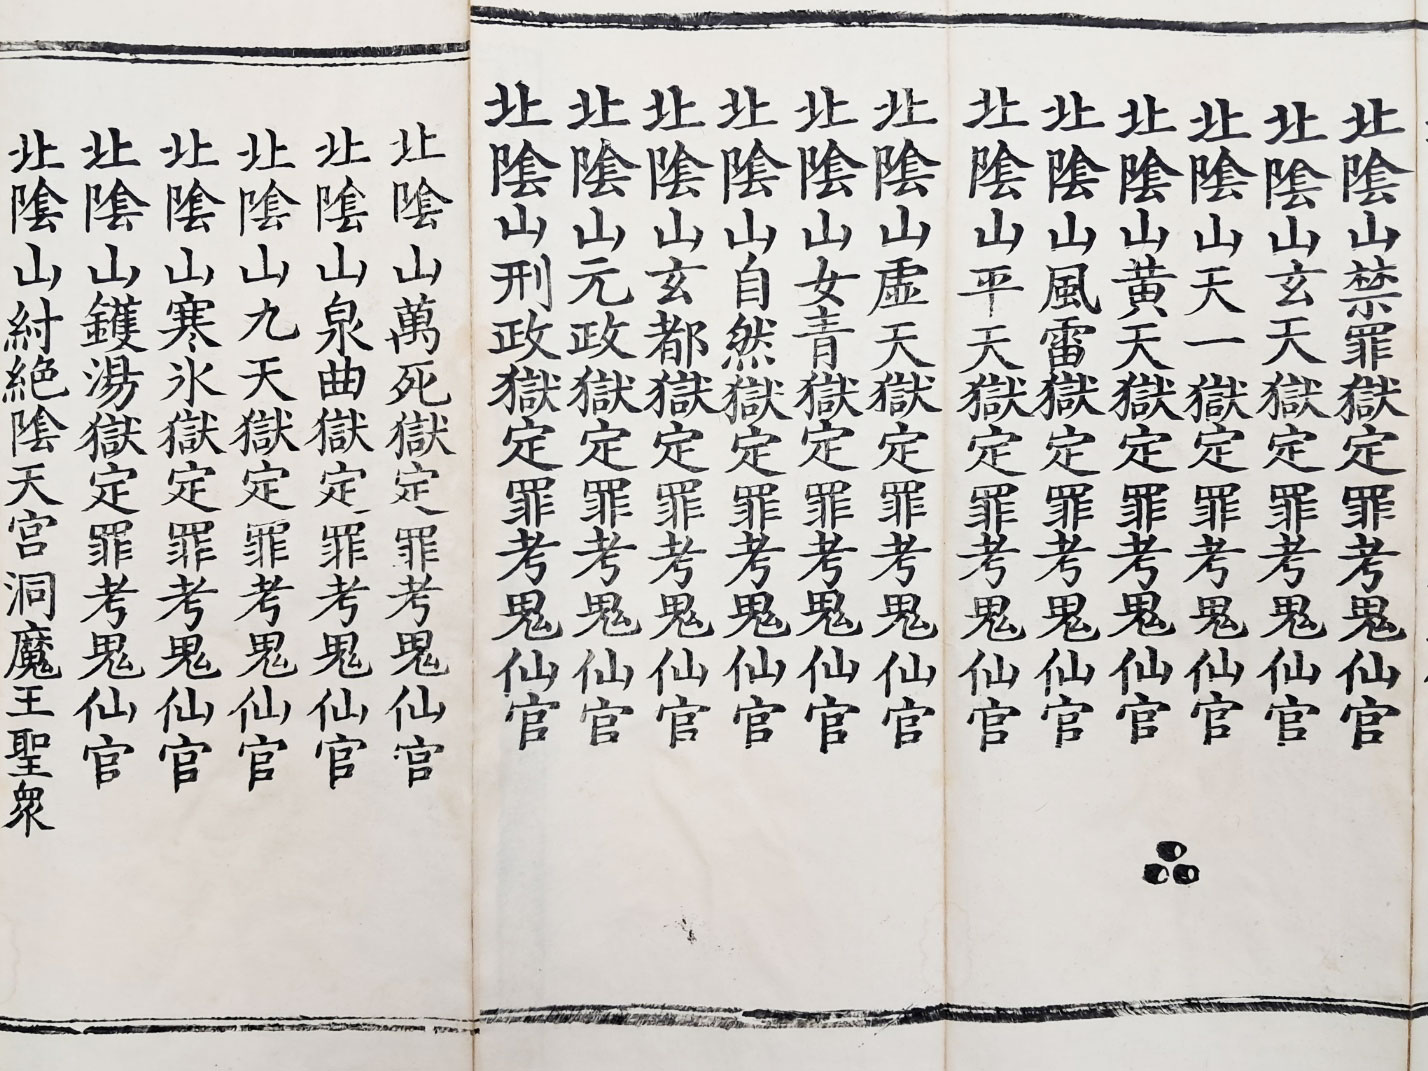 北陰山禁罪獄定罪考鬼仙官
北陰山玄天獄定罪考鬼仙官
北陰山天一獄定罪考鬼仙官
北陰山黄天獄定罪考鬼仙官
北陰山風雷獄定罪考鬼仙官
北陰山平天獄定罪考鬼仙官
北陰山虛天獄定罪考鬼仙官
北陰山女青獄定罪考鬼仙官
北陰山自然獄定罪考鬼仙官
北陰山玄都獄定罪考鬼仙官
北陰山元政獄定罪考鬼仙官
北陰山刑政獄定罪考鬼仙官
北陰山萬死獄定罪考鬼仙官
北陰山泉曲獄定罪考鬼仙官
北陰山九天獄定罪考鬼仙官
北陰山寒氷獄定罪考鬼仙官
北陰山鑊湯獄定罪考鬼仙官
北陰山紂絕陰天宮洞魔王聖眾